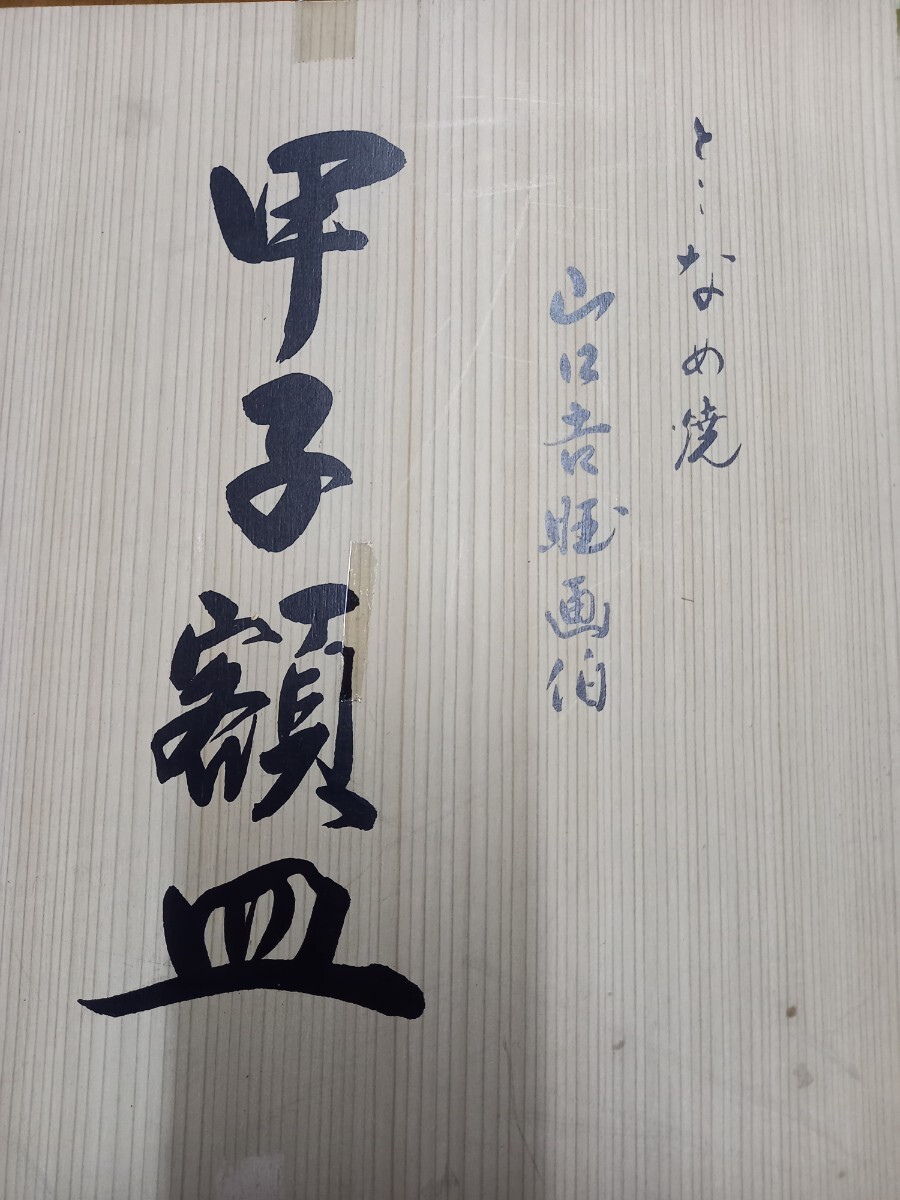 とこなめ焼
山口吉画伯
甲子額皿